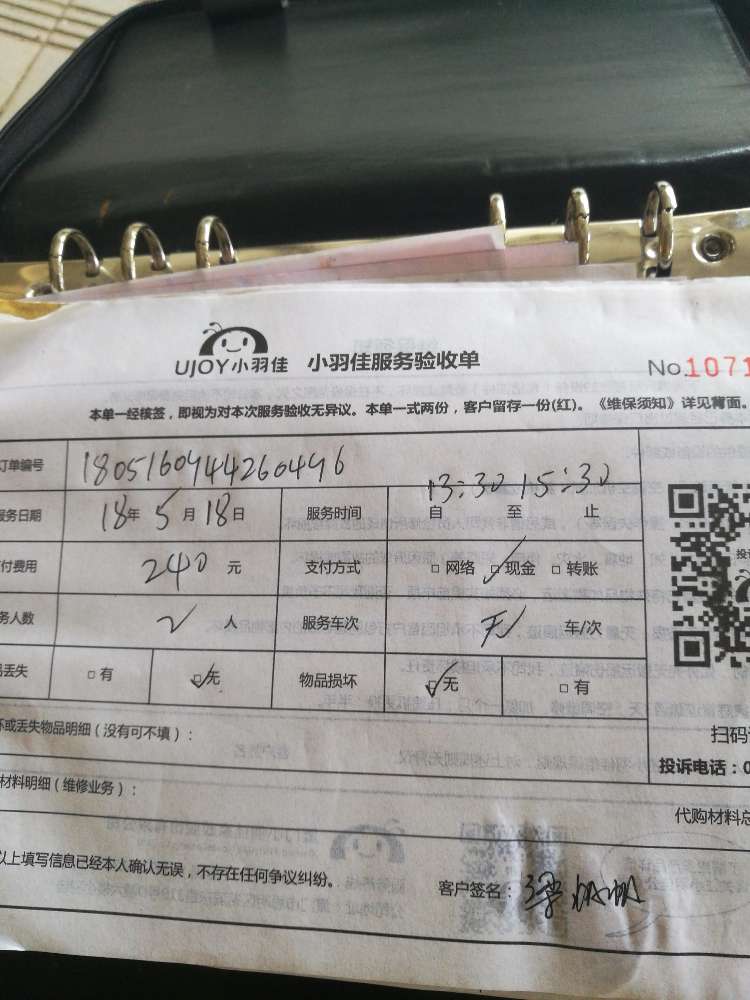 UJOY小羽佳 小羽佳服务验收单 No.1071
本单一经核签，即视为对本次服务验收无异议。本单一式两份，客户留存一份(红)。《维保须知》详见背面。
订单编号 1805160944260496
服务日期 18年 5月 18日 服务时间 自 13:30 至 15:30 止
付费用 240 元 支付方式 □ 网络 ☑ 现金 □ 转账
务人数 2 人 服务车次 无 车/次
丢失 □ 有 ☑ 无 物品损坏 ☑ 无 □ 有
坏或丢失物品明细（没有可不填）：
扫码
投诉电话：0
材料明细（维修业务）：
代购材料总
以上填写信息已经本人确认无误，不存在任何争议纠纷。 客户签名：